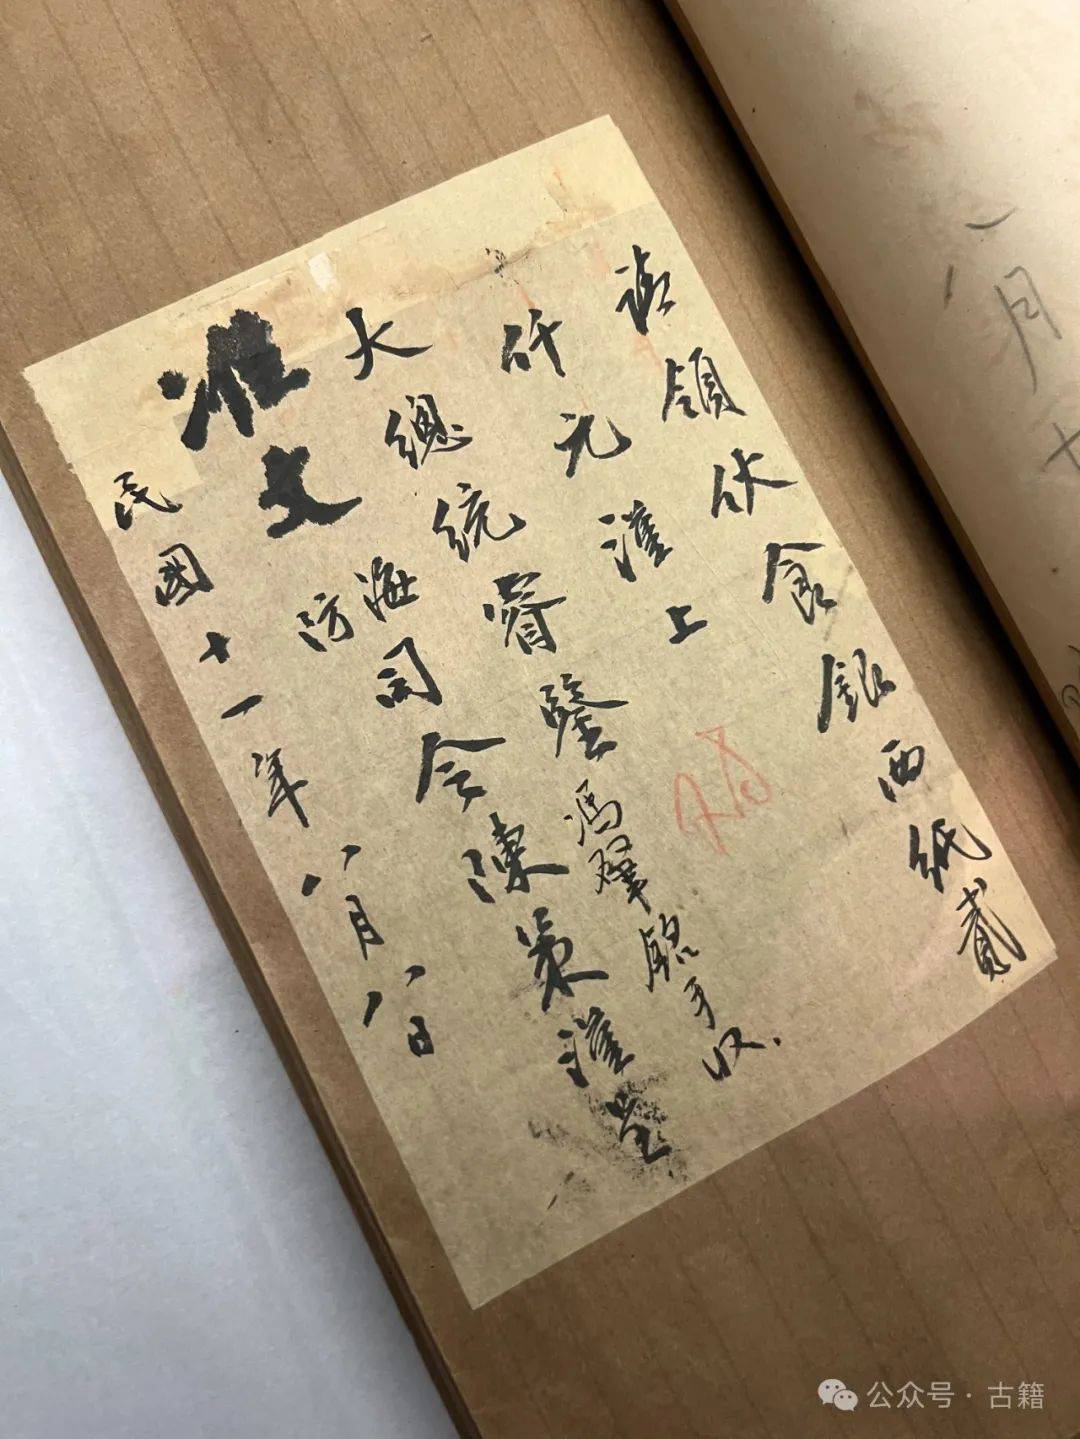 請領伙食銀西紙貳
仟元謹上
大總統睿鑒
馮肇銘手收.
海防司令陳策謹呈
准
文
民國十一年八月八日
八月十
公众号 · 古籍